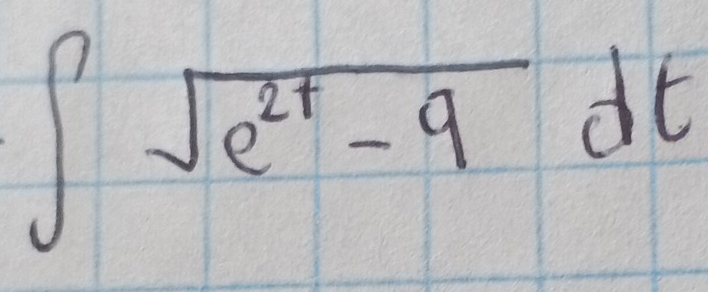 ∫ √(e^{2t} - 9) dt